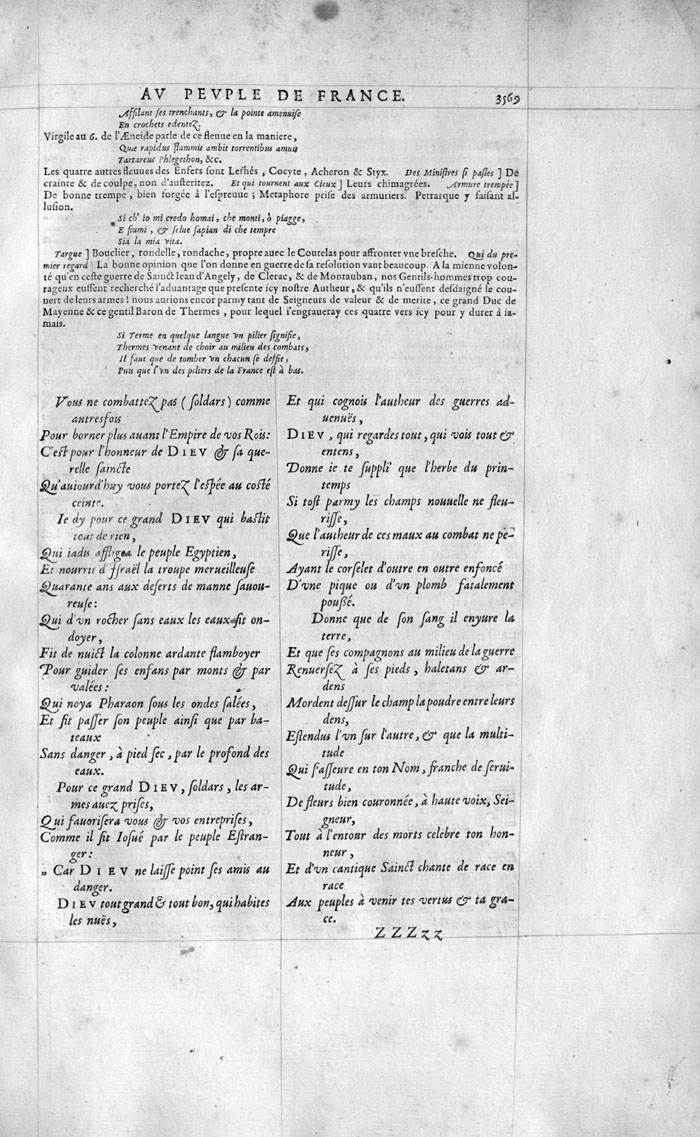 AV PEVPLE DE FRANCE. 3569
Affilant ses trenchants, & la pointe amenuise
En crochets edentez.
Virgile au 6. de l'Æneide parle de ce fleuue en la maniere,
Quæ rapidus flammis ambit torrentibus amnis
Tartareus Phlegethon, &c.
Les quatre autres fleuues des Enfers sont Lethés, Cocyte, Acheron & Styx. Des Ministres si pasles ] De
crainte & de coulpe, non d'austeritez. Et qui tournent aux Cieux ] Leurs chimagrées. Armure trempée ]
De bonne trempe, bien forgée à l'espreuue; Metaphore prise des armuriers. Petrarque y faisant al-
lusion.
Si ch' io mi credo homai, che monti, ò piagge,
E fiumi, & selue sapian di che tempre
Sia la mia vita.
Targue ] Bouclier, rondelle, rondache, propre auec le Coutelas pour affronter vne bresche. Qui du pre-
mier regard ] La bonne opinion que l'on donne en guerre de sa resolution vaut beaucoup. A la mienne volon-
té qu'en ceste guerre de Sainct Iean d'Angely, de Clerac, & de Montauban, nos Gentils-hommes trop cou-
rageux eussent recherché l'aduantage que presente icy nostre Autheur, & qu'ils n'eussent desdaigné le cou-
uert de leurs armes! nous aurions encor parmy tant de Seigneurs de valeur & de merite, ce grand Duc de
Mayenne & ce gentil Baron de Thermes, pour lequel i'engraueray ces quatre vers icy pour y durer à ia-
mais.
Si Terme en quelque langue vn pilier signifie,
Thermes venant de choir au milieu des combats,
Il faut que de tomber vn chacun se deffie,
Puis que l'vn des piliers de la France est à bas.
Vous ne combattez pas (soldars) comme
autresfois
Pour borner plus auant l'Empire de vos Rois:
C'est pour l'honneur de DIEV & sa que-
relle saincte
Qu'auiourd'huy vous portez l'espée au costé
ceinte.
Ie dy pour ce grand DIEV qui bastit
tout de rien,
Qui iadis affligea le peuple Egyptien,
Et nourrit d'Israël la troupe merueilleuse
Quarante ans aux deserts de manne sauou-
reuse:
Qui d'vn rocher sans eaux les eaux fit on-
doyer,
Fit de nuict la colonne ardante flamboyer
Pour guider ses enfans par monts & par
valées:
Qui noya Pharaon sous les ondes salées,
Et fit passer son peuple ainsi que par ba-
teaux
Sans danger, à pied sec, par le profond des
eaux.
Pour ce grand DIEV, soldars, les ar-
mes auez prises,
Qui fauorisera vous & vos entreprises,
Comme il fit Iosué par le peuple Estran-
ger:
„ Car DIEV ne laisse point ses amis au
danger.
DIEV tout grand & tout bon, qui habites
les nuës,
Et qui cognois l'autheur des guerres ad-
uenuës,
DIEV, qui regardes tout, qui vois tout &
entens,
Donne ie te suppli' que l'herbe du prin-
temps
Si tost parmy les champs nouuelle ne fleu-
risse,
Que l'autheur de ces maux au combat ne pe-
risse,
Ayant le corselet d'outre en outre enfoncé
D'vne pique ou d'vn plomb fatalement
poussé.
Donne que de son sang il enyure la
terre,
Et que ses compagnons au milieu de la guerre
Renuersez à ses pieds, haletans & ar-
dens
Mordent dessur le champ la poudre entre leurs
dens,
Estendus l'vn sur l'autre, & que la multi-
tude
Qui s'asseure en ton Nom, franche de serui-
tude,
De fleurs bien couronnée, à haute voix, Sei-
gneur,
Tout à l'entour des morts celebre ton hon-
neur,
Et d'vn cantique Sainct chante de race en
race
Aux peuples à venir tes vertus & ta gra-
ce.
ZZZzz